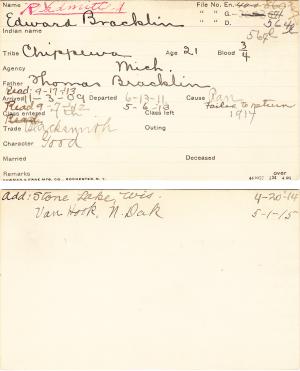 Name Readmitted File No. En.
Edward Bracklin " " G.
Indian name " " D. 5649
Tribe Chippewa Age 21 Blood 3/4
Agency Mich.
Father Thomas Bracklin
Read. 9-17-13
Arrived 1-3-09 Departed 6-13-11 Cause
Read 9-7-12 5-6-13 Failed to return
Class entered 7th Class left 1914
Trade Blacksmith Outing
Character Good
Married Deceased
Remarks over
Add: Stone Lake, Wis. 4-20-14
Van Hook, N. Dak 5-1-15